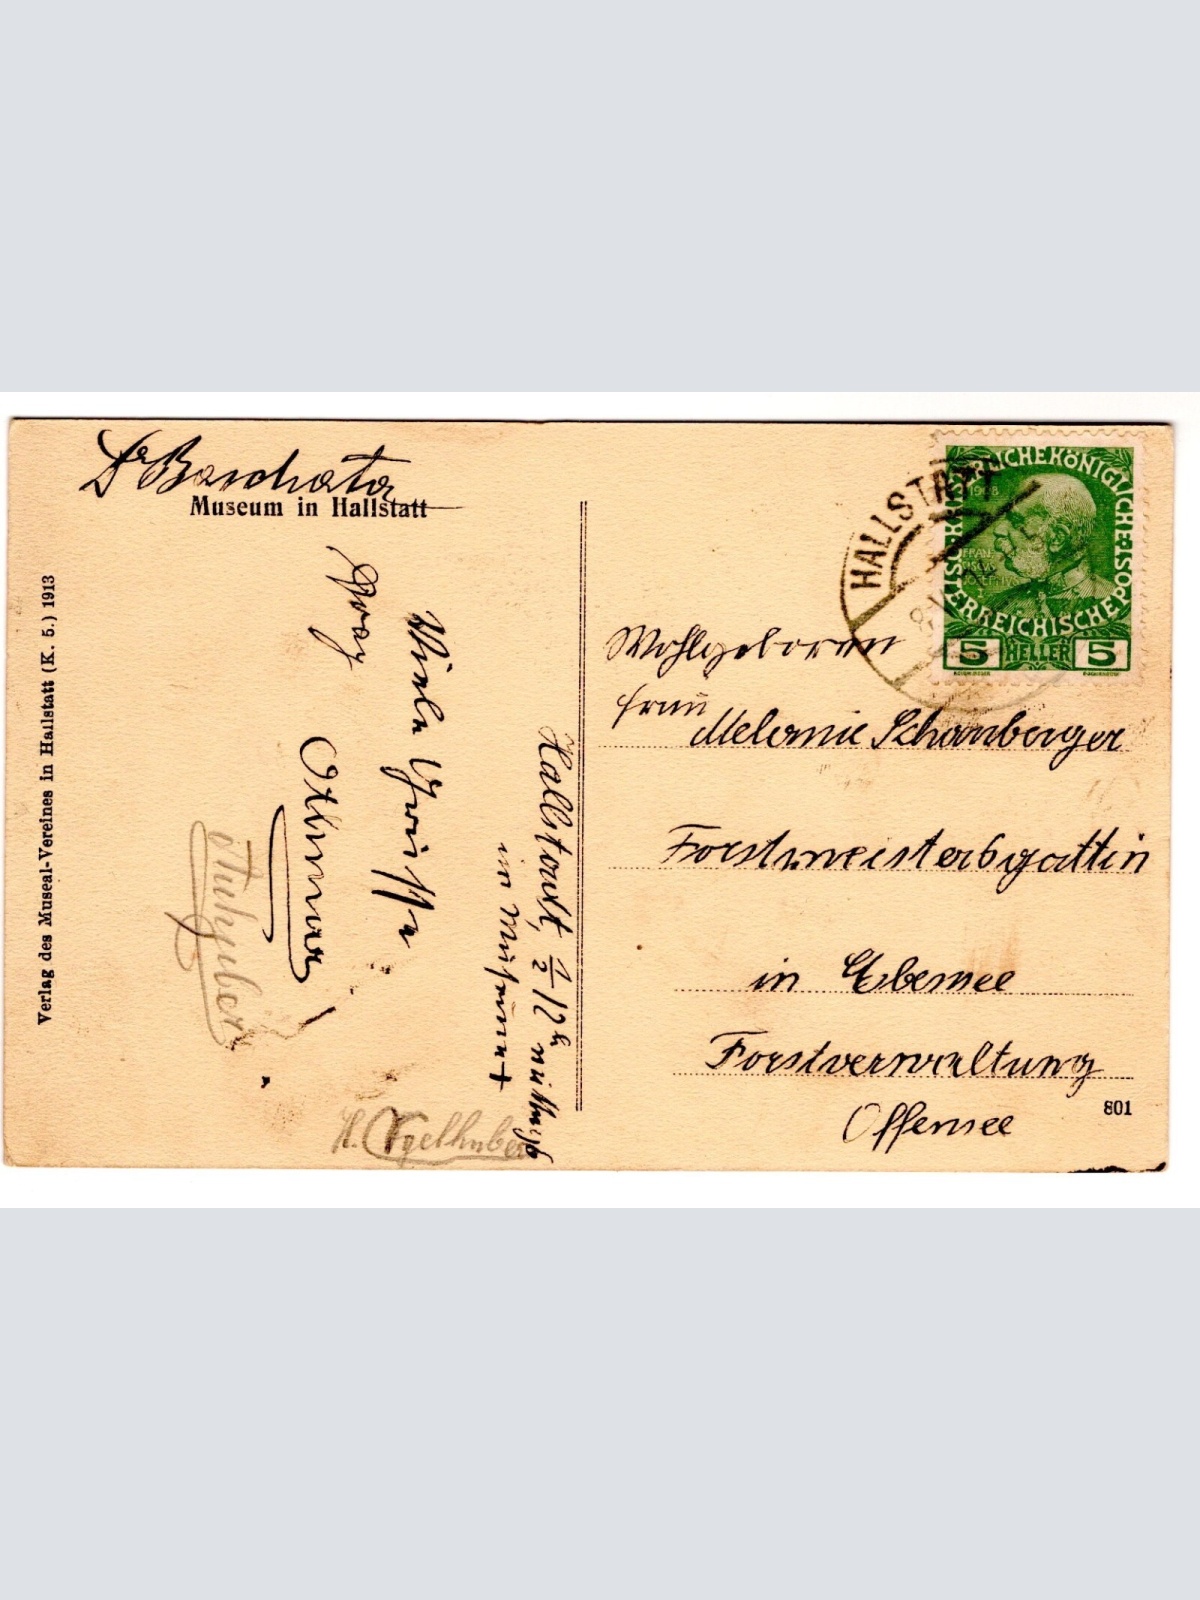 Dr
Museum in Hallstatt
Verlag des Museal-Vereines in Hallstatt (K. 5.) 1913
Hallstatt, 1/2 12h
im Museum
Viele Grüsse
Ottmar
H. Vogelhuber
HALLSTATT
KAISERLICHE KÖNIGLICHE ÖSTERREICHISCHE POST
1908
FRAN
CISCVS
IOSEPHVS
5 HELLER 5
Wohlgeboren
Frau
Melanie Schanberger
Forstmeistersgattin
in Ebensee
Forstverwaltung
Offensee
801